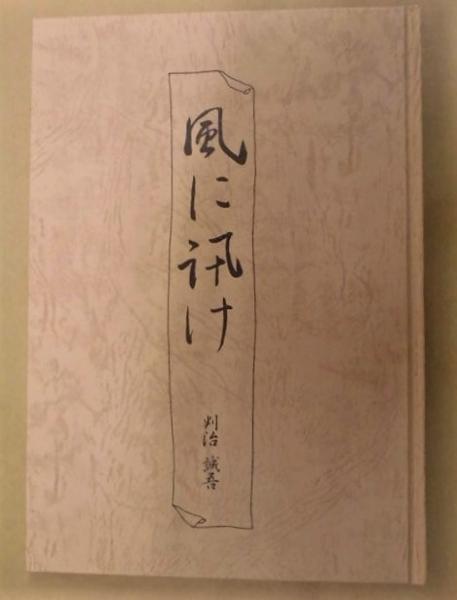 風に訊け
刈治 誠吾